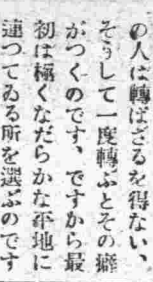 の人は轉ばざるを得ない、
そうして一度轉ぶとその癖
がつくのです、ですから最
初は極くなだらかな平地に
連つてゐる所を選ぶのです